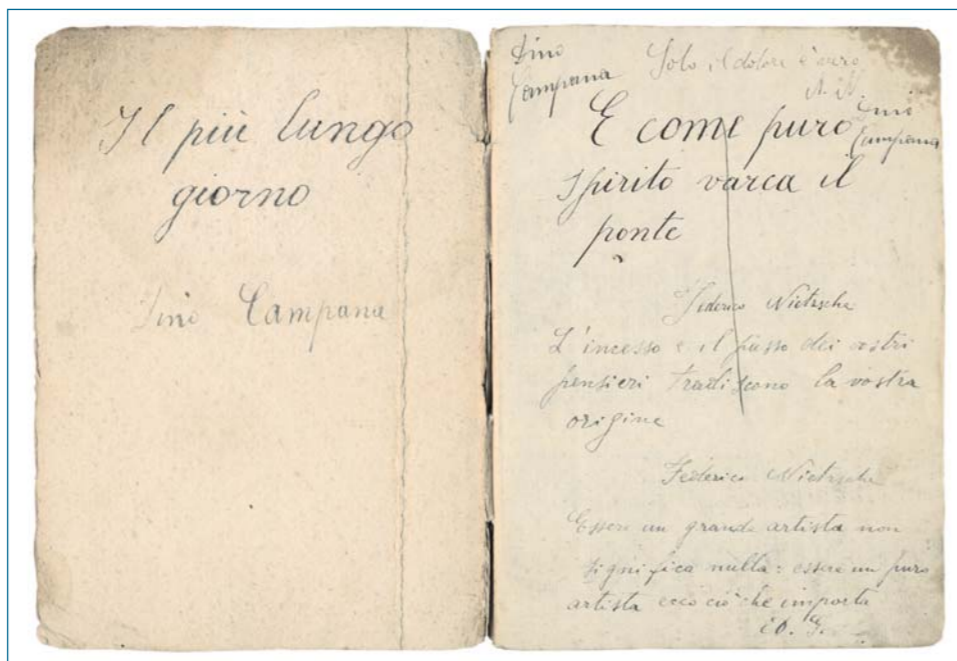 Il più lungo
giorno
Dino Campana
Dino
Campana
Solo il dolore è vero
Dino
Campana
E come puro
spirito varca il
ponte
Federico Nietzsche
L'incesso e il passo dei vostri
pensieri tradiscono la vostra
origine
Federico Nietzsche
Essere un grande artista non
significa nulla: essere un puro
artista ecco ciò che importa